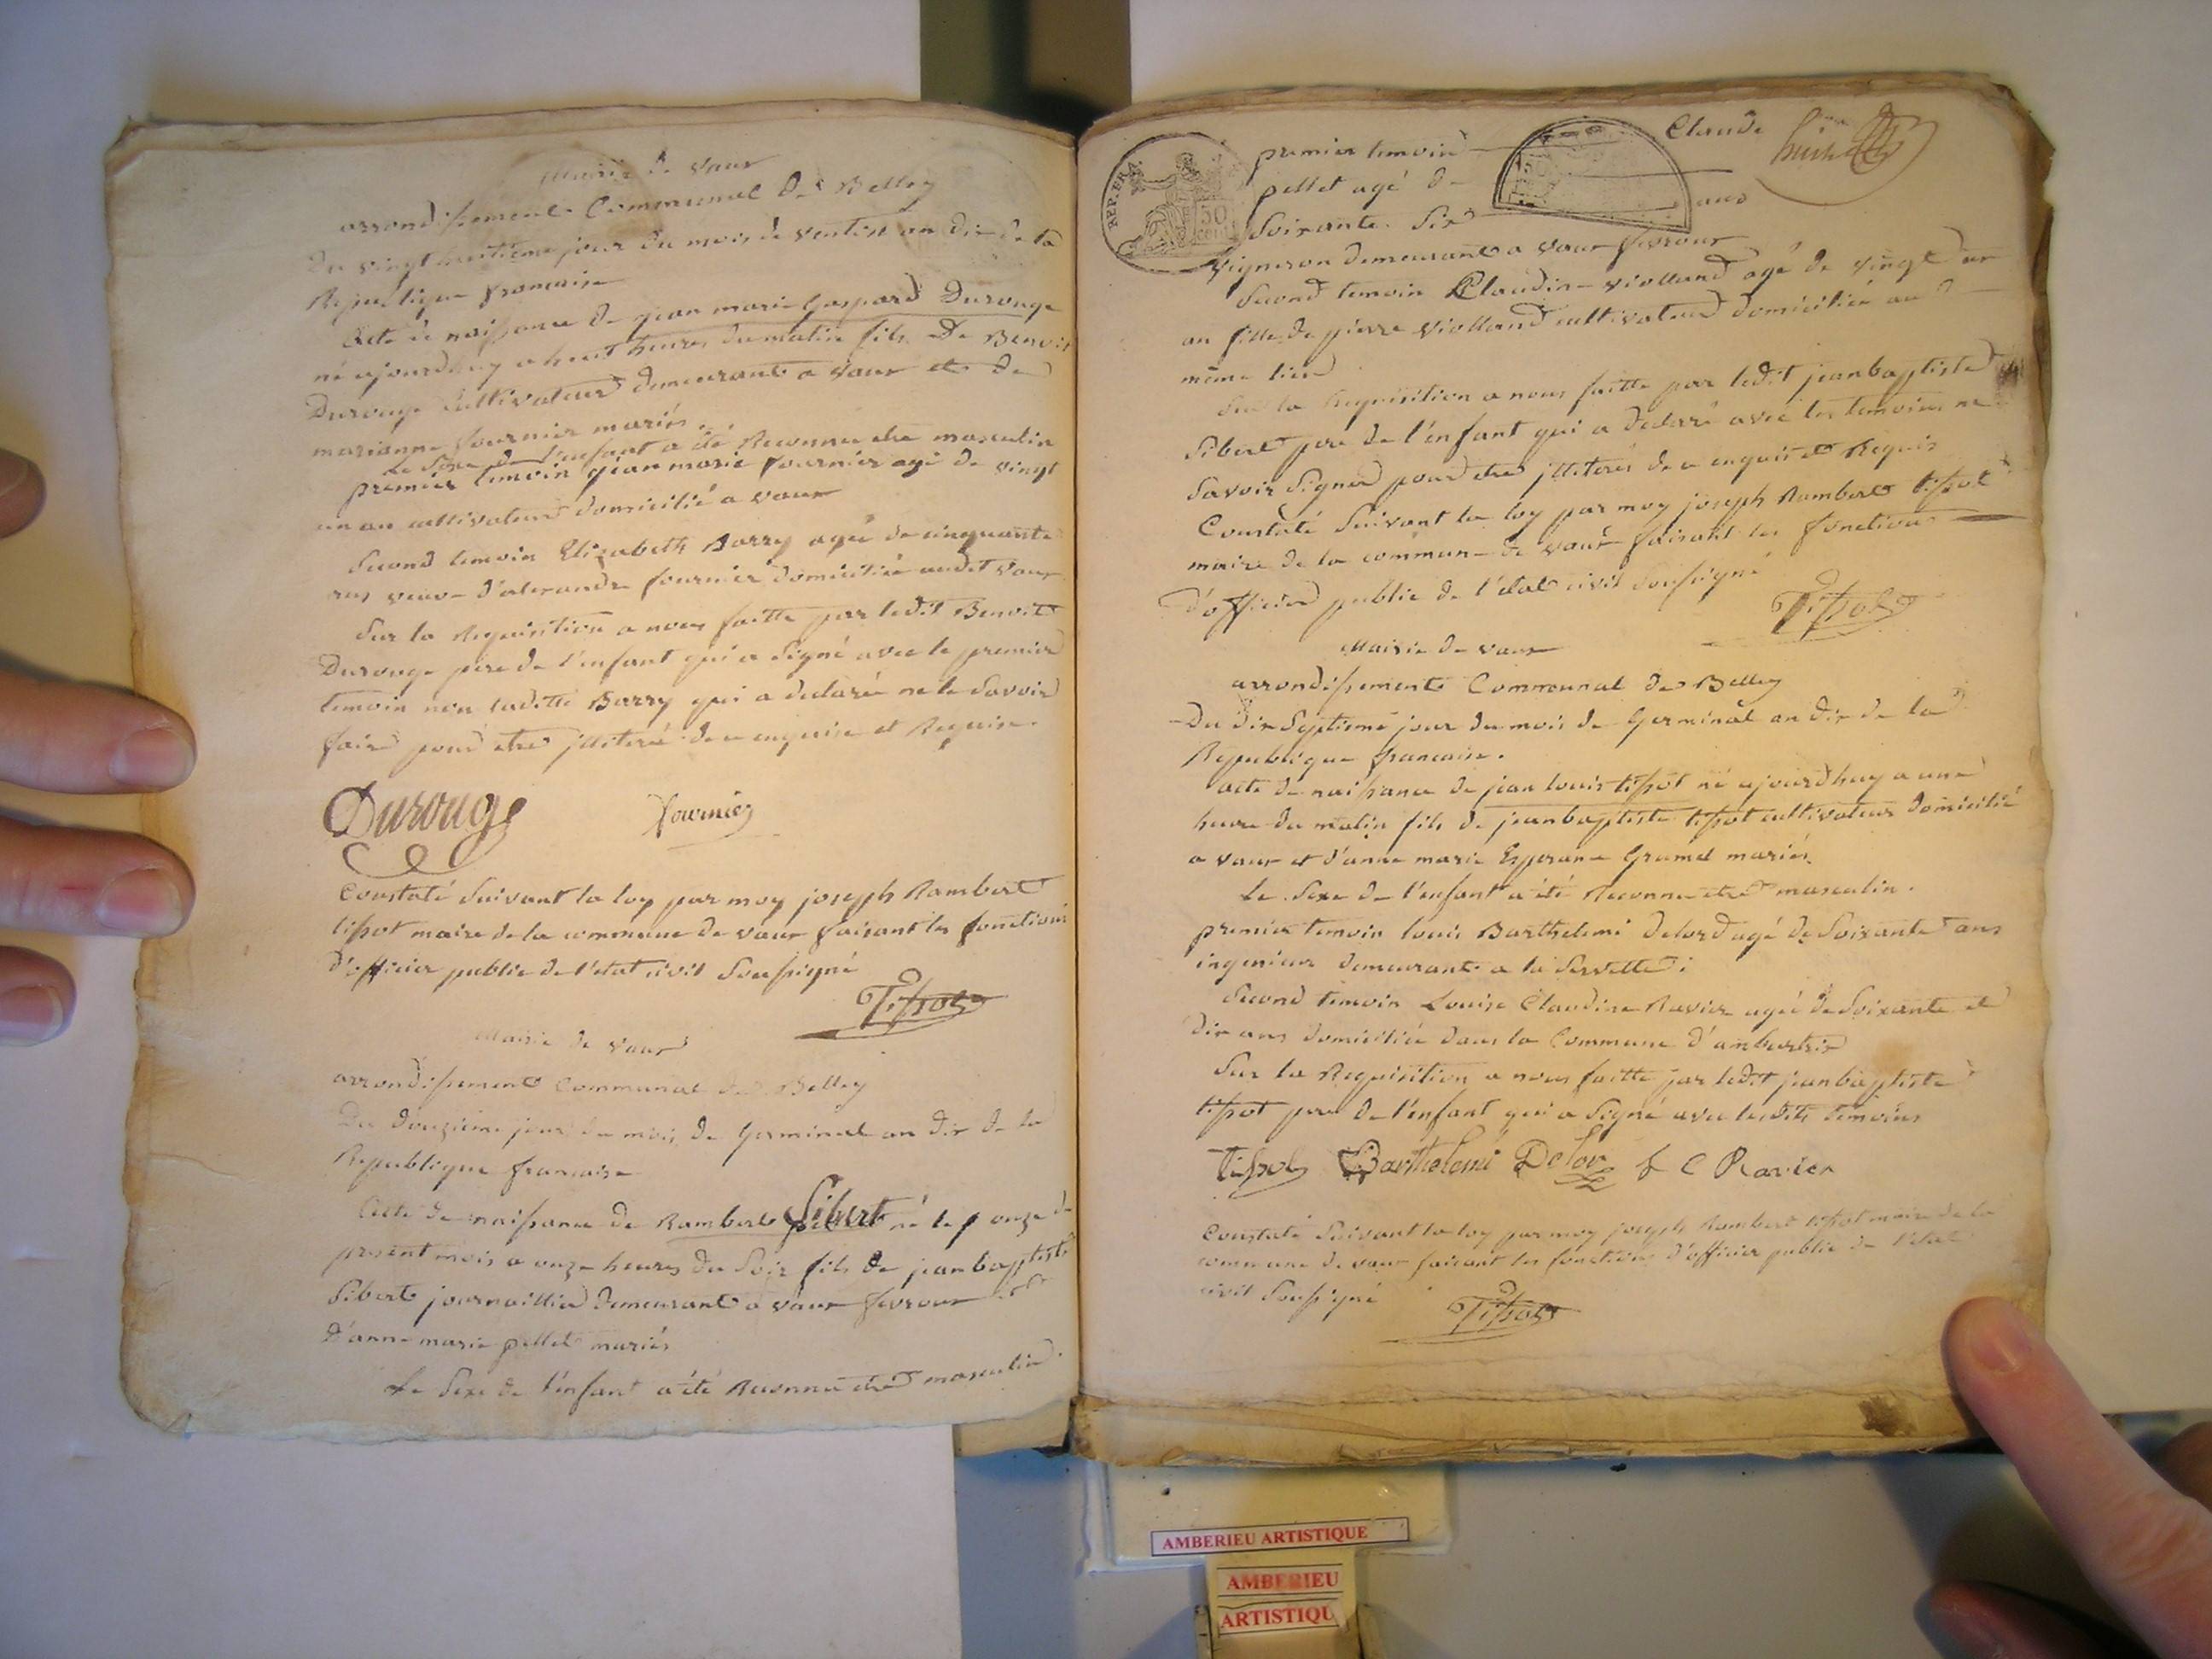 Mairie de vaux
arrondissement Communal De Belley
Du vingt huitieme jour du mois de ventose an dix de la
Republique francaise
Acte de naissance de jean marie Gaspard Durouge
né ajourdhuy a huit heures du matin fils De Benoit
Durouge Cultivateur demeurant a vaux et de
marianne fournier mariés.
Le Sexe de l'enfant a été Reconnu etre masculin
premier temoin jean marie fournier agé de vingt
un an cultivateur domicilié a vaux
Second temoin Elizabeth Barry agée de cinquante
ans veuve d'alexandre fournier domiciliée audit vaux
Sur la Requisition a nous faitte par ledit Benoit
Durouge pere de l'enfant qui a Signé avec le premier
temoin non laditte Barry qui a declarée ne le Savoir
faire pour etre jlliteré de ce enquise et Requise.
Durouge fournier
Constaté Suivant la loy par moy joseph Rambert
tissot maire de la commune de vaux faisant les fonctions
d'officier public de l'etat civil Soussigné
Tissot
Mairie de vaux
arrondissement Communal de Belley
Du douzieme jour du mois de Germinal an dix de la
Republique francaise
Acte de naissance de Rambert Sibert né le onze du
present mois a onze heures du Soir fils de jean baptiste
Sibert journaillier demeurant a vaux fevroux et
D'anne marie pellet mariés
Le Sexe de l'enfant a été Reconnu etre masculin.
REP. FRA.
50
cent
premier temoin Claude
pellet agé de
Soixante Six ans
vigneron demeurant a vaux fevroux
Second temoin Claudine violland agé de vingt un
an fille de pierre violland cultivateur domiciliée au d
même lieu
Sur la Requisition a nous faitte par ledit jean baptiste
Sibert pere de l'enfant qui a declaré avec les temoins ne
Savoir Signer pour etre jlliterés de ce enquis et Requis
Constaté Suivant la loy par moy joseph Rambert tissot
maire de la commune de vaux faisant les fonctions
d'officier public de l'etat civil Soussigné
Tissot
Mairie de vaux
arrondissement Communal de Belley
Du dix Septieme jour du mois de Germinal an dix de la
Republique francaise.
acte de naissance de jean louis tissot né ajourdhuy a une
heure du matin fils de jean baptiste tissot cultivateur domicilié
a vaux et d'anne marie Esperance Grumel mariés.
Le Sexe de l'enfant a été Reconnu etre masculin.
premier temoin louis Barthelemi delord agé de Soixante ans
ingenieur demeurant a la Servette.
Second temoin Louise Claudine Ravier agée de Soixante et
dix ans domiciliée dans la Commune d'ambutrix
Sur la Requisition a nous faitte par ledit jean baptiste
tissot pere de l'enfant qui a Signé avec lesdits temoins
Tissot Barthelemi Delor L C Ravier
Constaté Suivant la loy par moy joseph Rambert tissot maire de la
commune de vaux faisant les fonctions d'officier public de l'etat
civil Soussigné
Tissot
AMBERIEU ARTISTIQUE
AMBERIEU
ARTISTIQU